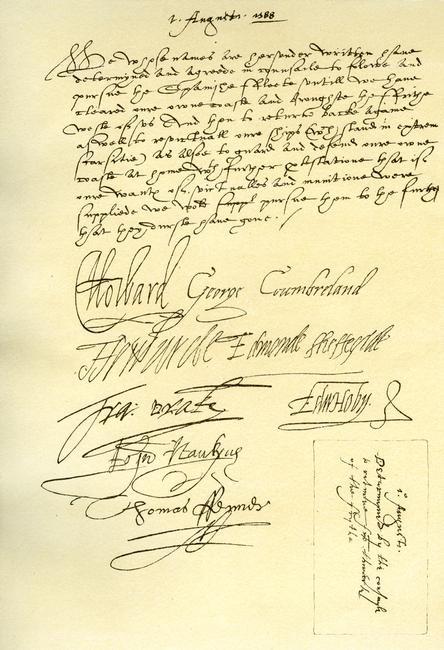 1. Auguste. 1588
We whose names are hereunder written have
determined and agreede in counsaile to folowe and
pursue the Spanishe Fleete untill we have
cleared oure owne coaste and broughte the Frithe
weste of us, and then to returne backe againe
as well to revictuall oure ships (wch stand in extreme
scarsitie) as alsoe to guard and defend oure owne
coaste at home, wth further protestatione that if
oure wantes of victualles and munitione were
suppliede we wold pursue them to the furthest
that they durste have gone.
C Howard George Cumbreland
T Howarde Edmonde Sheffeylde
Fra: Drake Edw Hoby
John Hawkyns
Thomas Fenner
1. Auguste.
Determyned by the counsale
to retourne
of the Frythe